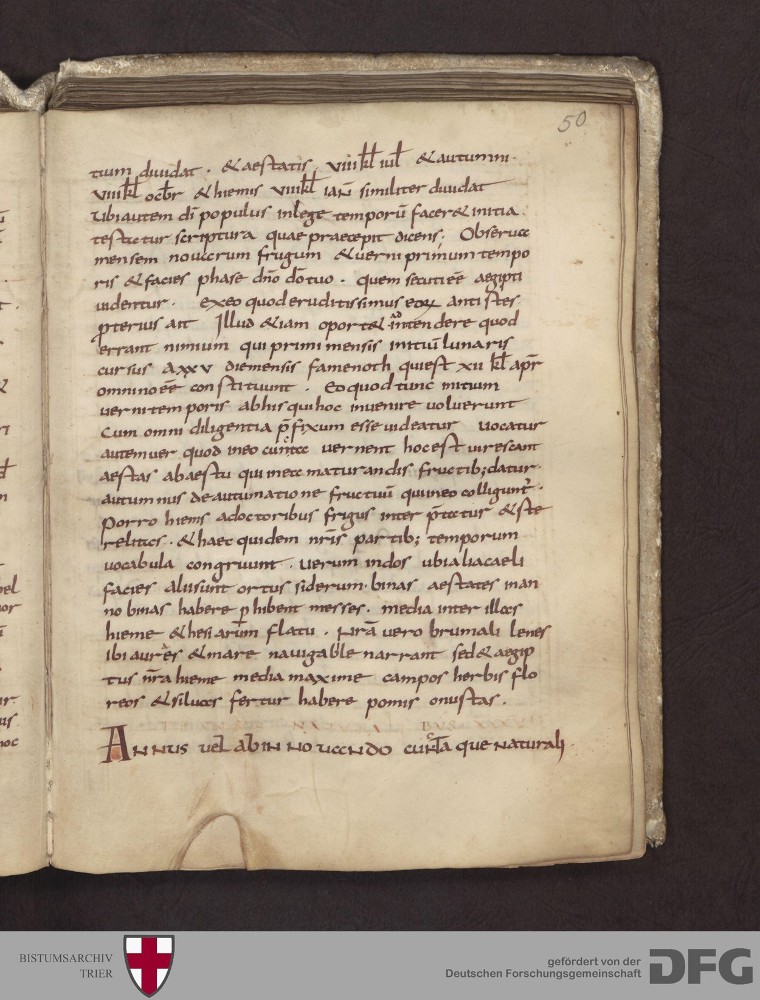 50
tium diuidat · & aestatis · viii kł iuł & autumni ·
viii kł octbr̄ & hiemis viiii kł ian̄ similiter diuidat
Ubi autem dī populus in lege temporū facer& initia
testatur scriptura quae praecepit dicens; Obserua
mensem nouarum frugum & uerni primum tempo
ris & facies phase dn̄o dō tuo · quem secuti eē aegipti
uidentur · ex eo quod eruditissimus eoꝝ antistes
pterius ait Illud &iam oport& intendere quod
errant nimium qui primi mensis initiū lunaris
cursus a xxv die mensis famenoth qui est xii kł apr̄
omnino eē constituunt · Eo quod tunc initium
uerni temporis ab his qui hoc inuenire uoluerunt
Cum omni diligentia p̄fixum esse uideatur uocatur
autem uer quod in eo cuncta uernent hoc est uirescant
aestas ab aestu qui in ea maturandis fructib; datur
autumnus de autumatione fructuū qui in eo colligunt̄ ·
Porro hiems a doctoribus frigus interp̄tatur & ste
relitas · & haec quidem nr̄is partib; temporum
uocabula congruunt · uerum indos ubi alia caeli
facies alii sunt ortus siderum · binas aestates in an
no binas habere ꝑhibent messes · media inter illas
hieme & hesiarum flatu · Nr̄a vero brumali lenes
ibi aures & mare nauigabile narrant sed & aegip
tus nr̄a hieme media maxime campos herbis flo
reos & siluas fertur habere pomis onustas ·
Annus uel ab innouando cuncta que naturali
BISTUMSARCHIV
TRIER
gefördert von der
Deutschen Forschungsgemeinschaft
DFG